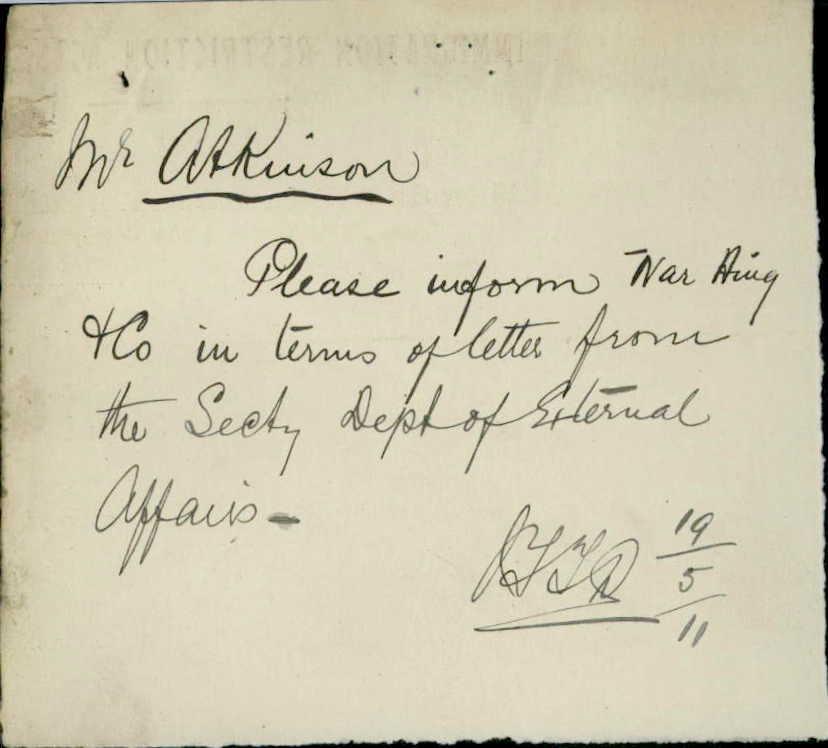 Mr Atkinson
Please inform War Hing
& Co in terms of letter from
the Secty Dept of External
Affairs —
19
5
11